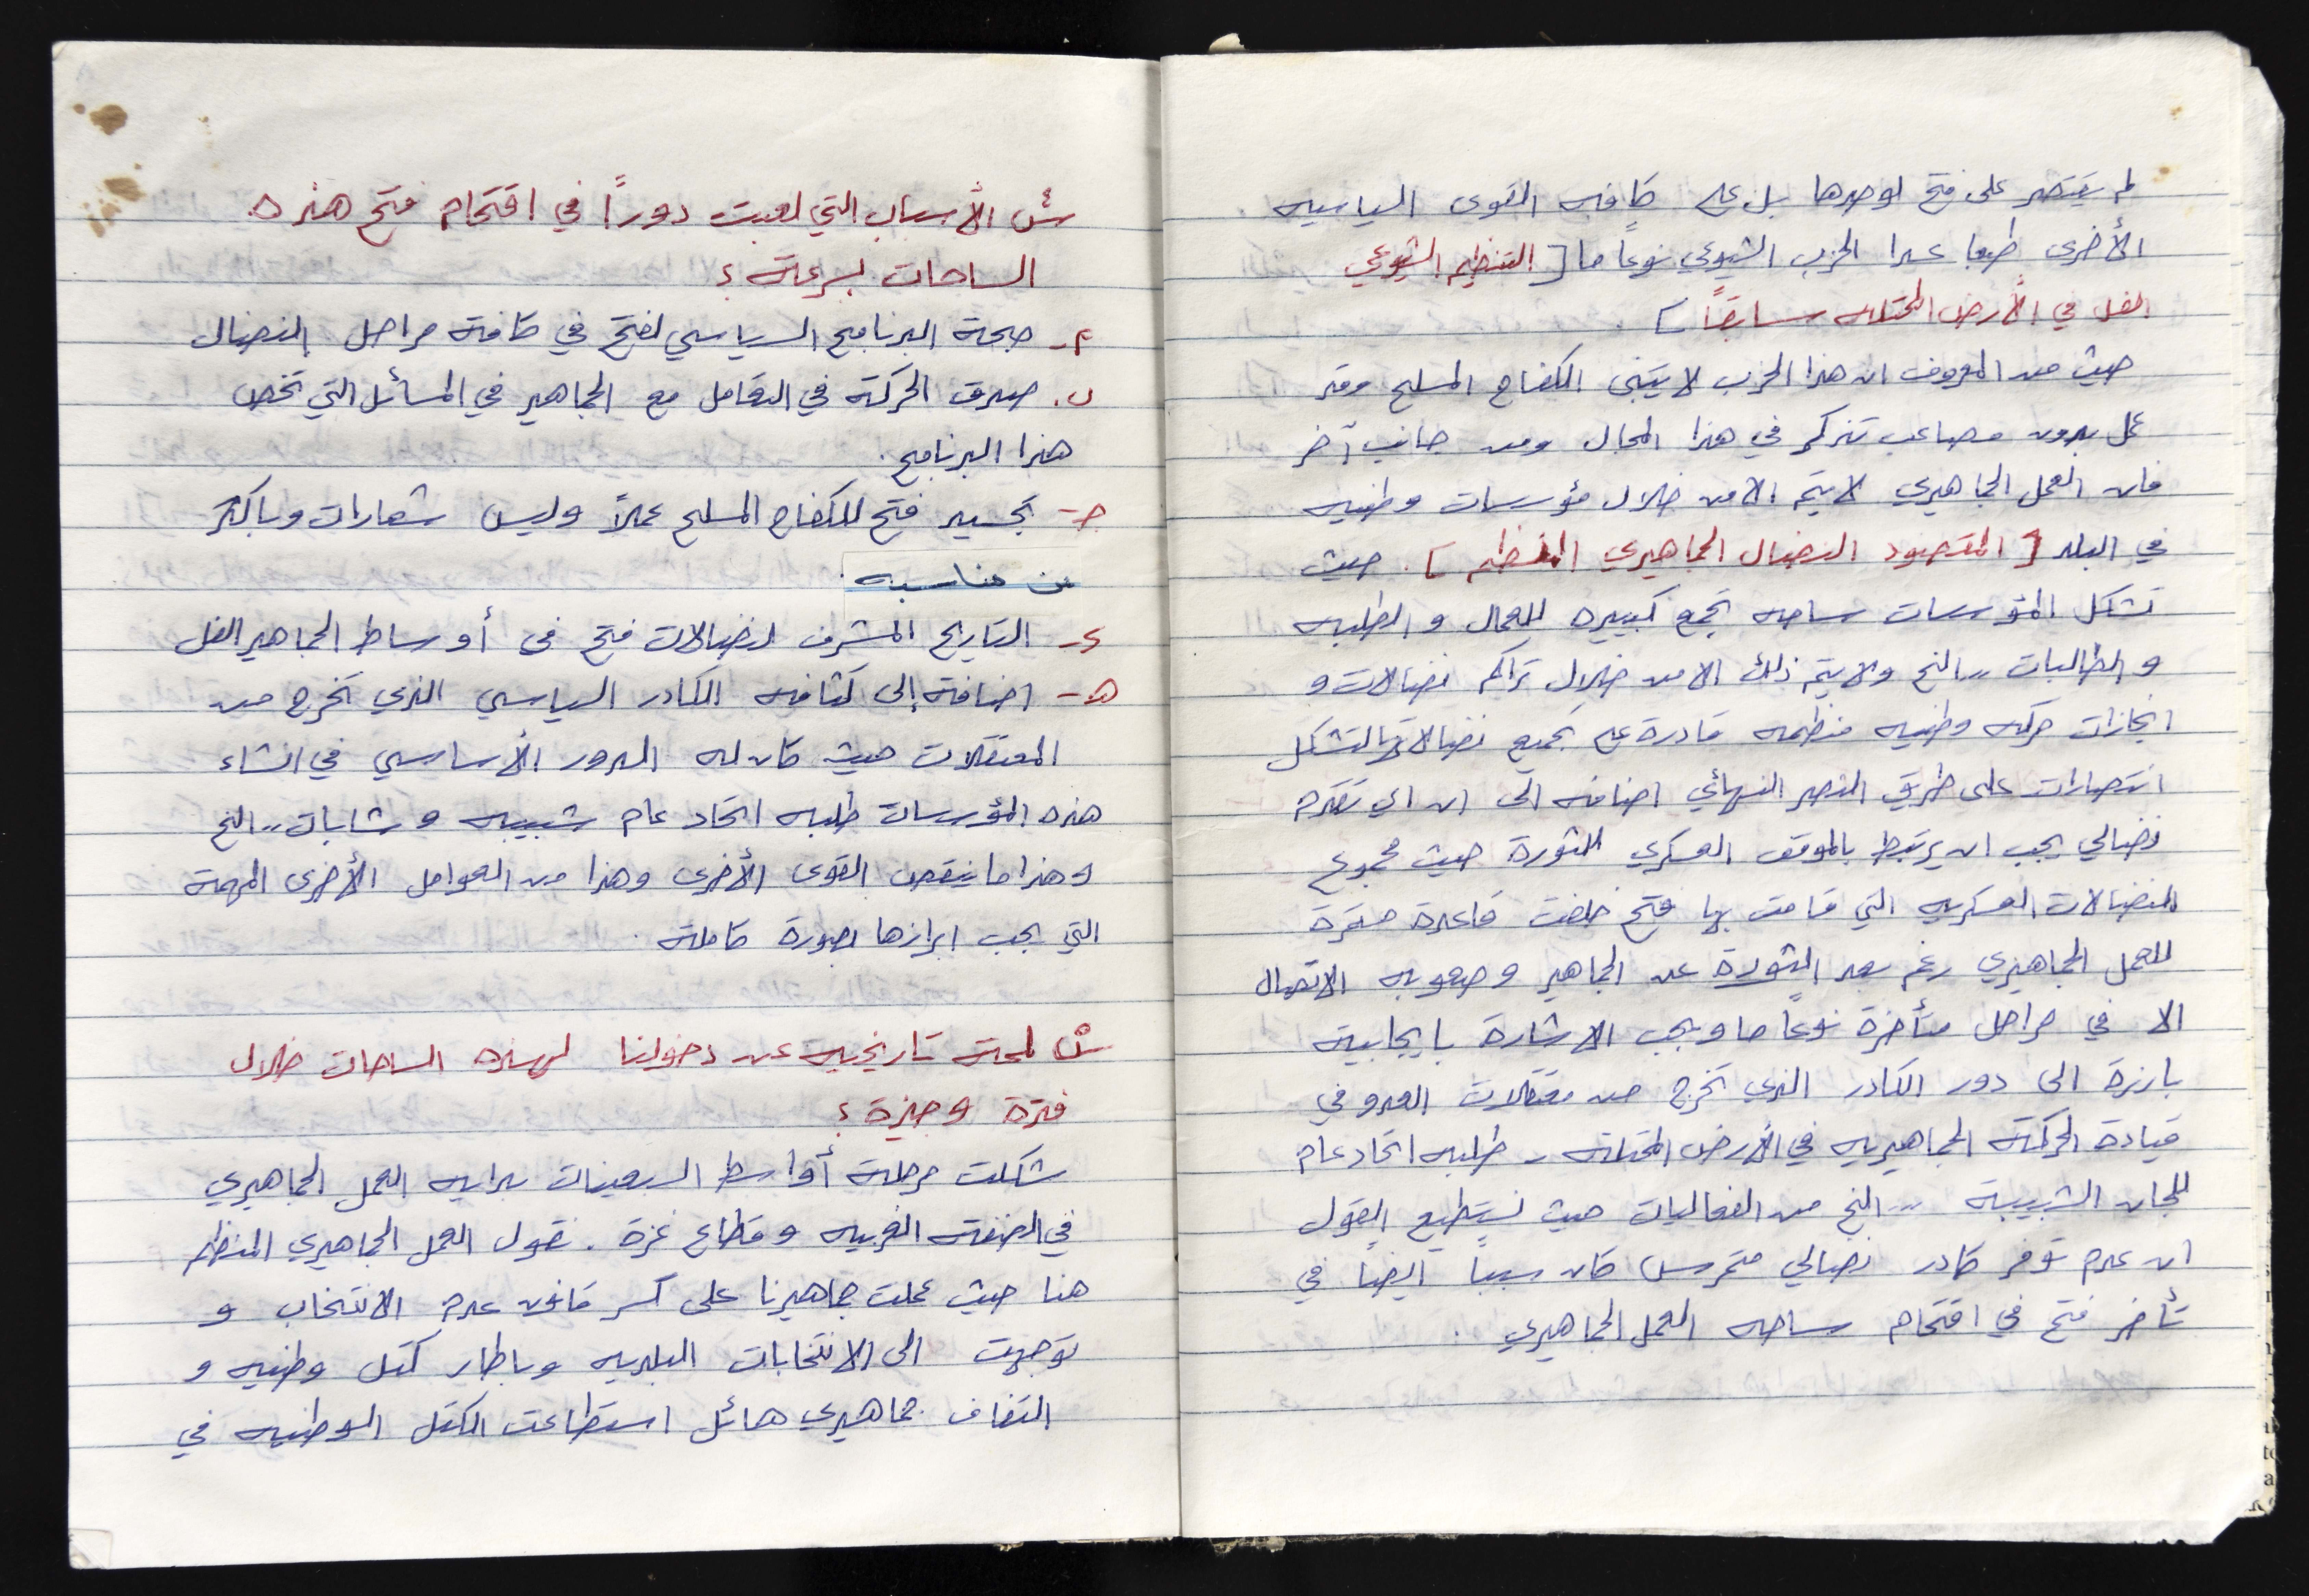 لم يقتصر على فتح لوحدها بل على كافه القوى السياسيه
الأخرى طبعا عدا الحزب الشيوعي نوعاً ما [ التنظيم الشيوعي
الفل في الأرض المحتله سابقاً ] .
حيث من المعروف ان هذا الحزب لا يتبنى الكفاح المسلح وقد
عمل بدون مصاعب تذكر في هذا المجال ومن جانب آخر
فان العمل الجماهيري لا يتم الا من خلال مؤسسات وطنيه
في البلد [ المقصود النضال الجماهيري المنظم ] . حيث
تشكل المؤسسات ساحه تجمع كبيره للعمال و الطلبه
و الطالبات .. الخ ولا يتم ذلك الا من خلال تراكم نضالات و
انجازات حركه وطنيه منظمه قادرة على تجميع نضالاتها لتشكل
انتصارات على طريق النصر النهائي اضافه الى ان اي تقدم
نضالي يجب ان يرتبط بالموقف العسكري للثورة حيث مجموع
النضالات العسكريه التي قامت بها فتح خلقت قاعدة
للعمل الجماهيري رغم بعد الثورة عن الجماهير وصعوبه الاتصال
الا في مراحل متأخرة نوعاً ما ويجب الاشارة بايجابية
بارزة الى دور الكادر الذي تخرج من معتقلات العدو في
قيادة الحركة الجماهيريه في الأرض المحتلة - طلبه اتحاد عام
للجان الشبيبة .. الخ من الفعاليات حيث نستطيع القول
ان عدم توفر كادر نضالي متمرس كان سبباً ايضاً في
تأخر فتح في اقتحام ساحه العمل الجماهيري .
س الأسباب التي لعبت دوراً في اقتحام فتح هذه
الساحات بسرعة ؟
م - صحة البرنامج السياسي لفتح في كافة مراحل النضال
ب . صدق الحركة في التعامل مع الجماهير في المسائل التي تخص
هذا البرنامج .
جـ - تجسيد فتح للكفاح المسلح عملاً وليس شعارات وباكثر
من مناسبه .
د - التاريخ المشرف لنضالات فتح في أوساط الجماهير الفل
هـ - اضافة إلى كثافه الكادر السياسي الذي تخرج من
المعتقلات حيث كان له الدور الأساسي في انشاء
هذه المؤسسات طلبه اتحاد عام شبيبه وشابات .. الخ
وهذا ما ينقص القوى الأخرى وهذا من العوامل الأخرى المهمة
التي يجب ابرازها بصورة كاملة .
س لمحة تاريخيه عن دخولنا لهذه الساحات خلال
فترة وجيزة ؟
شكلت مرحلة أواسط السبعينات بدايه العمل الجماهيري
في الضفة الغربيه وقطاع غزة . نقول العمل الجماهيري المنظم
هنا حيث عملت جماهيرنا على كسر قانون عدم الانتخاب و
توجهت الى الانتخابات البلديه وباطار كتل وطنيه و
التفاف جماهيري هائل استطاعت الكتل الوطنيه في